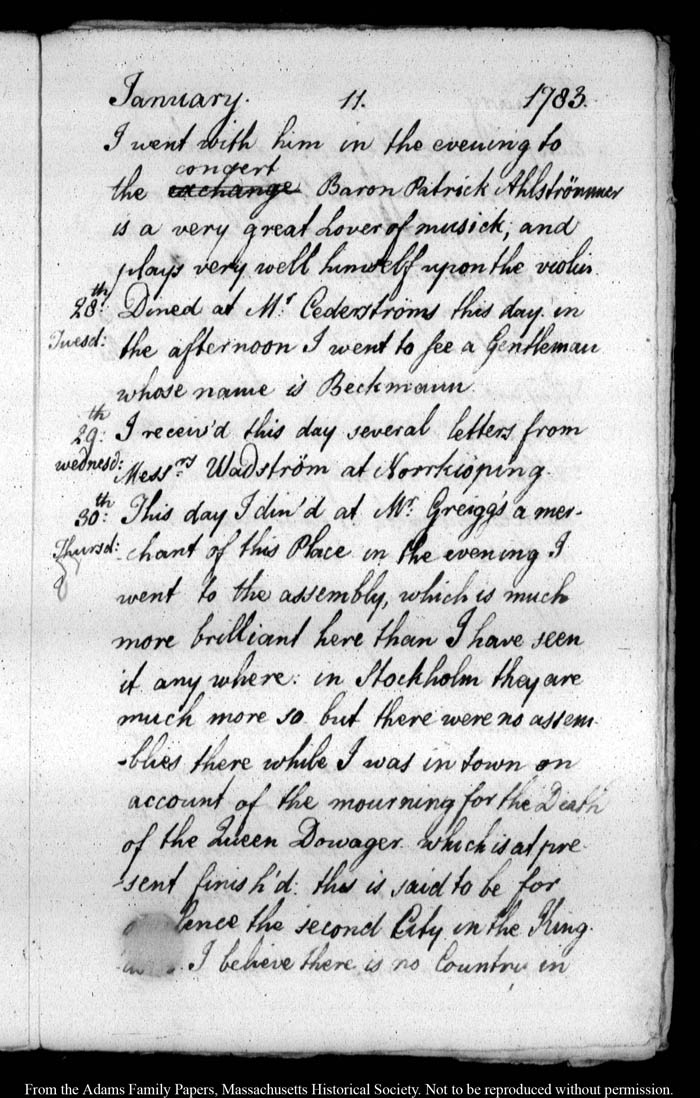 January. 11. 1783.
I went with him in the evening to
concert
the exchange Baron Patrick Ahlströmmer
is a very great Lover of musick, and
plays very well himself upon the violin
28th: Dined at Mr Cederströms this day. in
Tuesd: the afternoon I went to see a Gentleman
whose name is Beckmann
29th: I receiv'd this day several letters from
wednesd: Messrs Wadström at Norrkiöping.
30th: This day I din'd at Mr. Greiggs a mer-
Thursd: -chant of this Place in the evening I
went to the assembly, which is much
more brilliant here than I have seen
it any where: in Stockholm they are
much more so but there were no assem-
-blies there while I was in town on
account of the mourning for the Death
of the Queen Dowager. which is at pre-
-sent finish'd: this is said to be for
the second City in the King-
. I believe there is no Country in
From the Adams Family Papers, Massachusetts Historical Society. Not to be reproduced without permission.